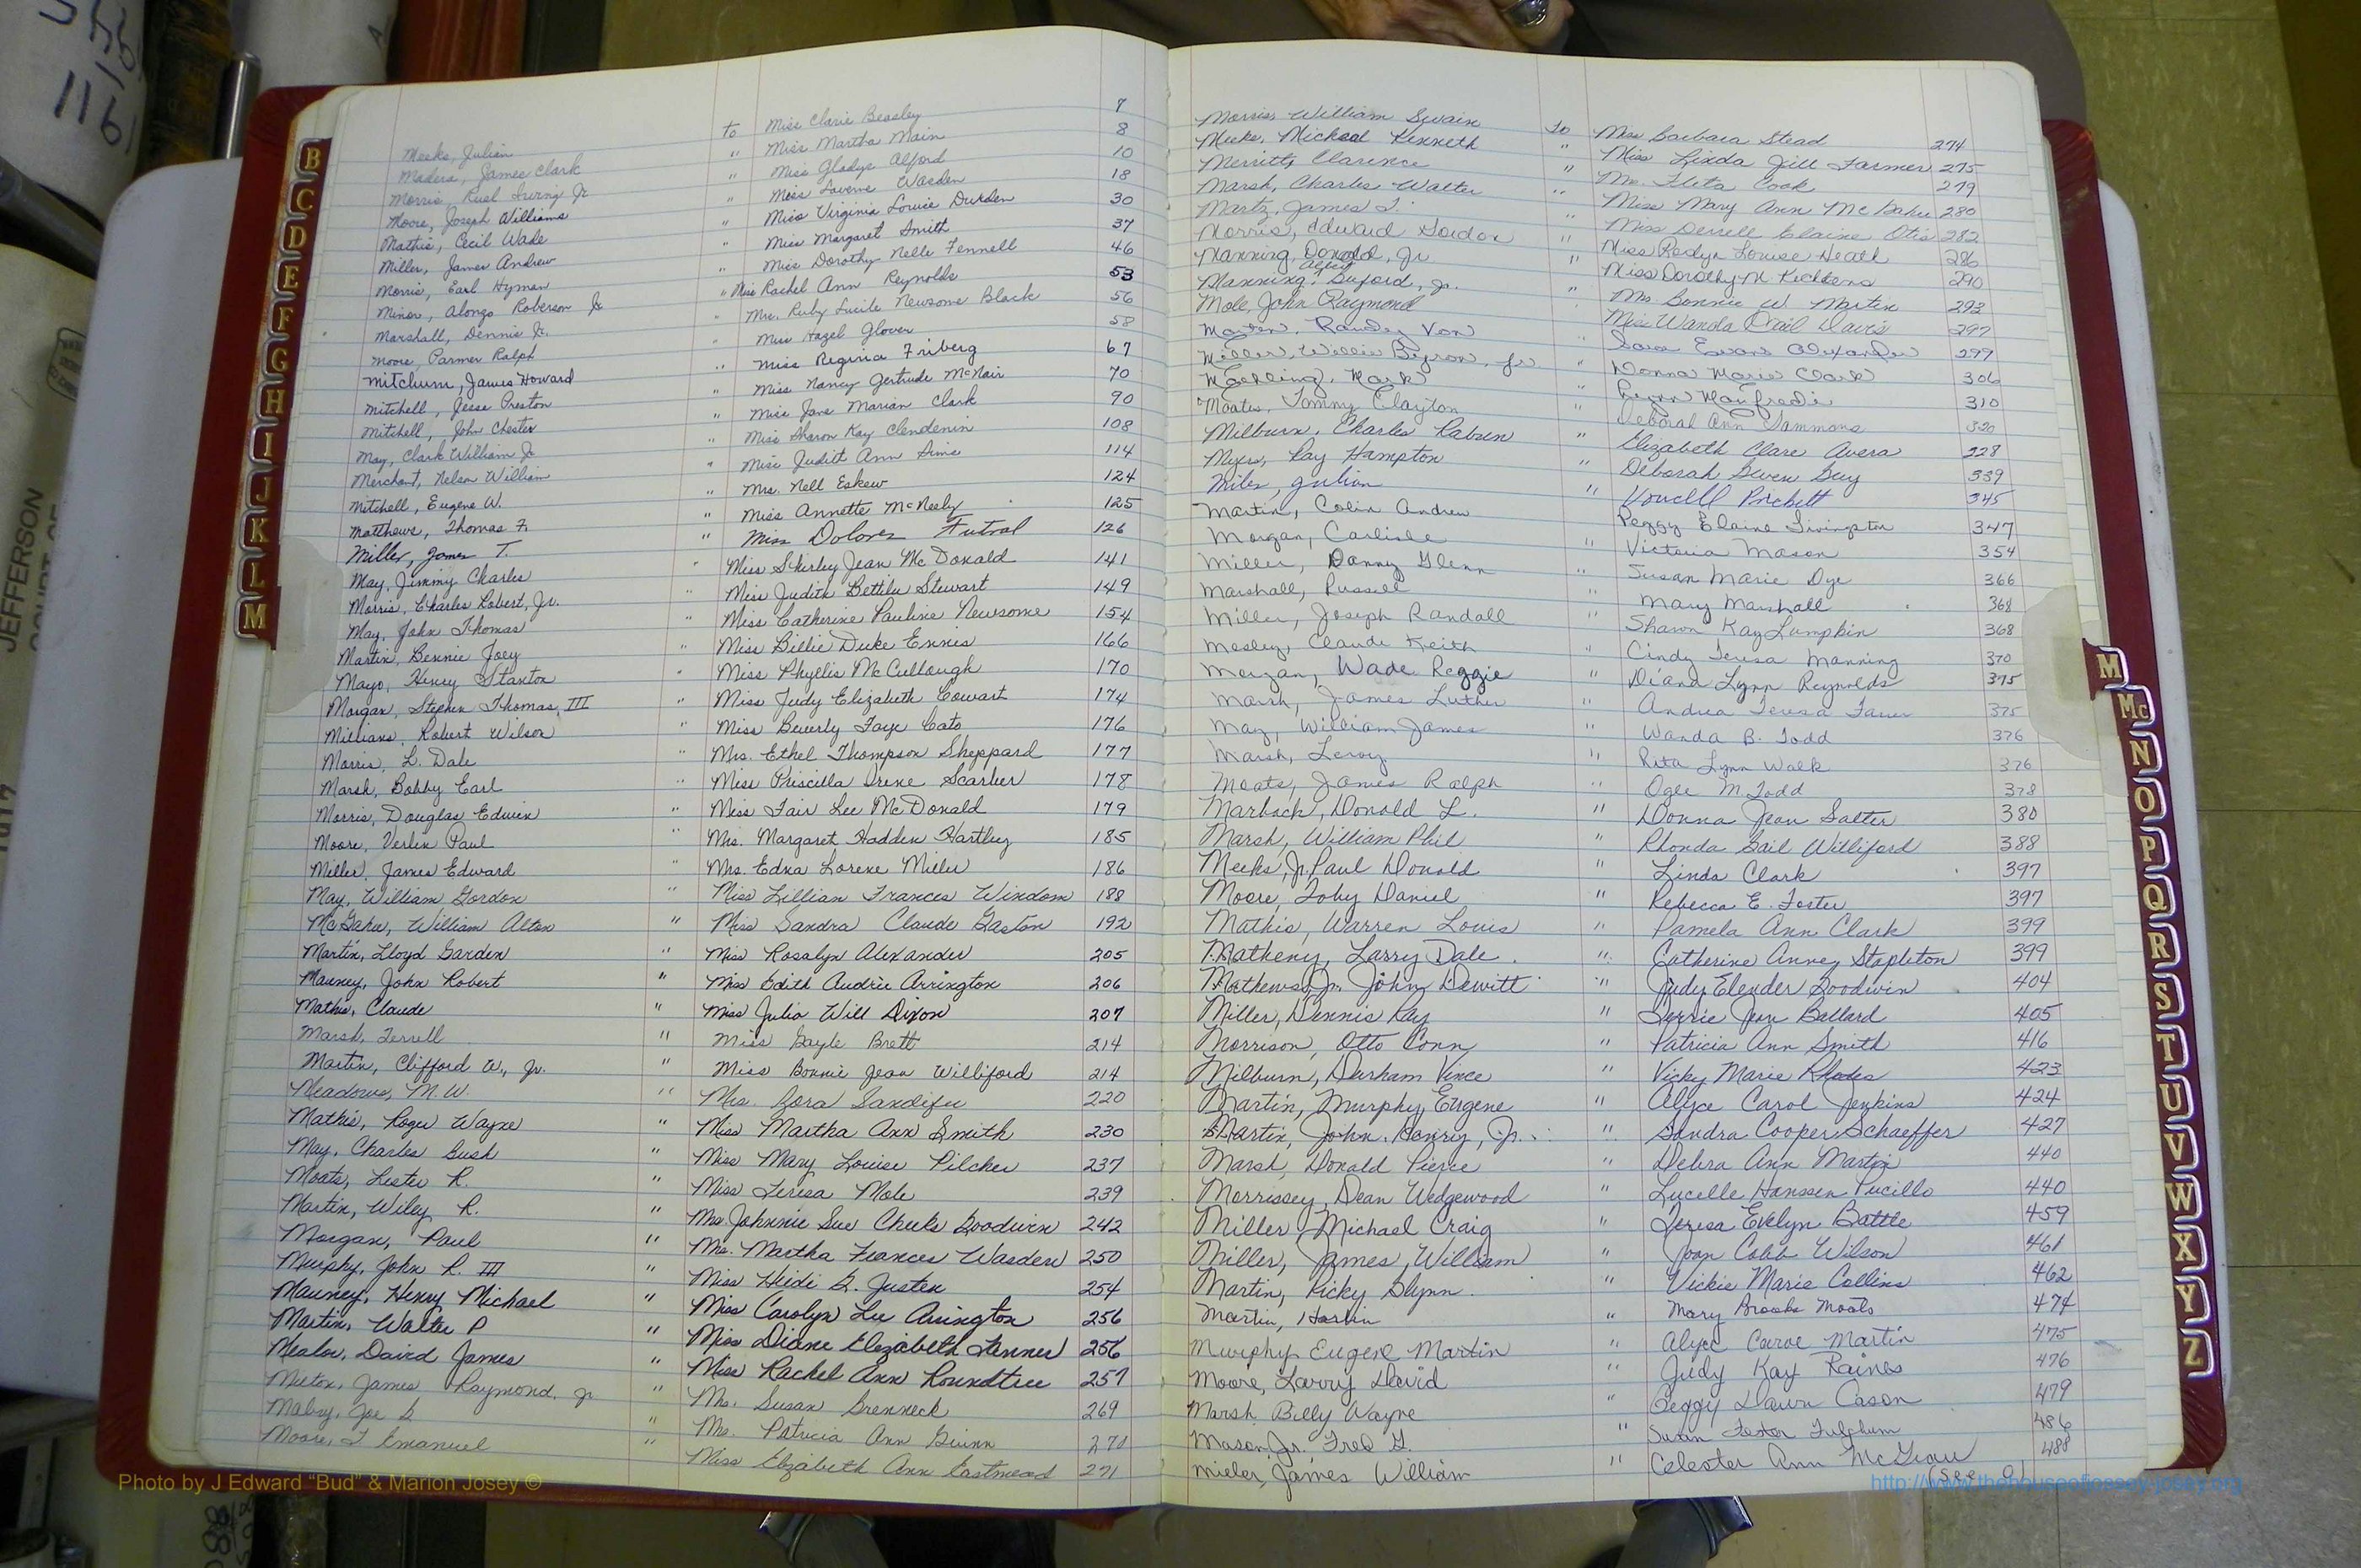 Meeks, Julian to Miss Clarie Beasley 7
Madera, James Clark " Miss Martha Main 8
Morris, Rual Irving Jr " Miss Gladys Alford 10
Moore, Joseph Williams " Miss Laverne Wasden 18
Mathis, Cecil Wade " Miss Virginia Louise Durden 30
Miller, James Andrew " Miss Margaret Smith 37
Morris, Earl Hyman " Miss Dorothy Nelle Fennell 46
Minor, Alonzo Roberson Jr " Miss Rachel Ann Reynolds 53
Marshall, Dennis Jr. " Mrs. Ruby Lucile Newsome Black 56
Moore, Parmer Ralph " Miss Hazel Glover 58
Mitchum, James Howard " Miss Regina Friberg 67
Mitchell, Jesse Preston " Miss Nancy Gertrude McNair 70
Mitchell, John Chester " Miss Jane Marian Clark 90
May, Clark William Jr " Miss Sharon Kay Clendenin 108
Merchant, Nelson William " Miss Judith Ann Sims 114
Mitchell, Eugene W. " Mrs. Nell Eskew 124
Matthews, Thomas F. " Miss Annette McNeely 125
Miller, James T. " Miss Dolores Futral 126
May, Jimmy Charles " Miss Shirley Jean McDonald 141
Morris, Charles Robert, Jr. " Miss Judith Bettilu Stewart 149
May, John Thomas " Miss Catherine Pauline Newsome 154
Martin, Bennie Joey Miss Billie Duke Ennis 166
Mayo, Henry Stanton " Miss Phyllis McCullough 170
Morgan, Stephen Thomas, III " Miss Judy Elizabeth Cowart 174
Millians, Robert Wilson " Miss Beverly Faye Cato 176
Morris, L. Dale " Mrs. Ethel Thompson Sheppard 177
Marsh, Bobby Earl " Miss Priscilla Irene Scarber 178
Morris, Douglas Edwin " Miss Fair Lee McDonald 179
Moore, Verlin Paul " Mrs. Margaret Hadden Hartley 185
Miller, James Edward " Mrs. Edna Lorene Miller 186
May, William Gordon " Miss Lillian Frances Windom 188
McGahu, William Alton " Miss Sandra Claude Gaston 192
Martin, Lloyd Garden " Miss Rosalyn Alexander 205
Mauney, John Robert " Miss Edith Audrie Arrington 206
Mathis, Claude " Miss Julia Will Dixon 207
Marsh, Terrell " Miss Gayle Brett 214
Martin, Clifford W., Jr. " Miss Bonnie Jean Williford 214
Meadows, M. W. " Mrs. Zora Sandifer 220
Mathis, Roger Wayne " Miss Martha Ann Smith 230
May, Charles Gush " Miss Mary Louise Pilcher 237
Moats, Lester R. " Miss Teresa Mole 239
Martin, Wiley R. " Mrs. Johnnie Sue Cheeks Goodwin 242
Morgan, Paul " Mrs. Martha Frances Wasden 250
Murphy, John R. III " Miss Heidi G. Justen 254
Mauney, Henry Michael " Miss Carolyn Lee Arrington 256
Martin, Walter P " Miss Diane Elizabeth Fenner 256
Mealor, David James " Miss Rachel Ann Roundtree 257
James Raymond, Jr " Mrs. Susan Brenneck 269
Mabry, Joe G " Mrs. Patricia Ann Guinn 270
Moore, T Emanuel " Miss Elizabeth Ann Eastmead 271
Morris, William Swain to Miss Barbara Stead 274
Meeks, Micheal Kenneth " Miss Linda Jill Farmer 275
Merritt, Clarence " Ms. Fleta Cook 279
Marsh, Charles Walter " Miss Mary Ann McGahee 280
Martz, James T. " Miss Derrell Elaine Otis 282
Morris, Edward Gordon " Miss Rodye Louise Heath 286
Manning, Donald, Jr " Miss Dorothy N. Rickens 290
Manning, Alfred Buford, Jr. " Ms Bonnie W Martin 293
Mole, John Raymond Miss Wanda Gail Davis 297
Martin, Randey Von " Sara Evans Alexander 299
Miller, Willie Byron, Jr. " Donna Marie Clark 306
Maehling, Mark " Lynn Manfredi 310
Moates, Tommy Clayton " Deboral Ann Sammons 320
Milburn, Charles Rabun " Elizabeth Clare Avera 228
Myers, Ray Hampton " Deborah Gwen Guy 339
Miles, Julian " Vowell Prickett 345
Martin, Colin Andrew Peggy Elaine Livingston 347
Morgan, Carlisle " Victoria Mason 354
Miller, Danny Glenn " Susan Marie Dye 366
Marshall, Russell " Mary Marshall 368
Miller, Joseph Randall " Sharon Kay Lumpkin 368
Mosley, Claude Keith " Cindy Teresa Manning 370
Morgan, Wade Reggie " Diana Lynn Reynolds 375
Marsh, James Luther " Andrea Teresa Farrer 375
May, William James " Wanda B. Todd 376
Marsh, Leroy " Rita Lynn Walk 376
Moats, James Ralph " Ogee M. Todd 378
Marback, Donald L. " Donna Jean Salter 380
Marsh, William Phil " Rhonda Gail Williford 388
Meeks, Jr, Paul Donald " Linda Clark 397
Moore, Toby Daniel " Rebecca E. Foster 397
Mathis, Warren Louis " Pamela Ann Clark 399
Matheny, Larry Dale " Catherine Anney Stapleton 399
Mathews, Jr. John Dewitt " Judy Elender Goodwin 404
Miller, Dennis Ray " Jerrie Jean Ballard 405
Morrison, Otto Conn " Patricia Ann Smith 416
Milburn, Durham Vince " Vicky Marie Rhodes 423
Martin, Murphy Eugene " Alyce Carol Jenkins 424
Martin, John Henry, Jr. " Sandra Cooper Schaeffer 427
Marsh, Donald Pierce " Debra Ann Martin 440
Morrissey, Dean Wedgewood " Lucelle Hanssen Pucillo 440
Miller, Michael Craig " Teresa Evelyn Battle 459
Miller, James, William " Joan Cobb Wilson 461
Martin, Ricky Glynn " Vickie Marie Collins 462
Martin, Harlin " Mary Brooks Moats 474
Murphy Eugene Martin " Alyce Carol Martin 475
Moore, Larry David " Judy Kay Raines 476
Marsh, Billy Wayne " Peggy Dawn Cason 479
Mason, Jr. Fred G. " Susan Foster Fulghum 486
Mieler, James William " Celester Ann McGraw 488
(See O)
B
C
D
E
F
G
H
I
J
K
L
M
M
Mc
N
O
P
Q
R
S
T
U
V
W
X
Y
Z
JEFFERSON
Photo by J Edward “Bud” & Marion Josey ©
http://www.thehouseofjossey-josey.org